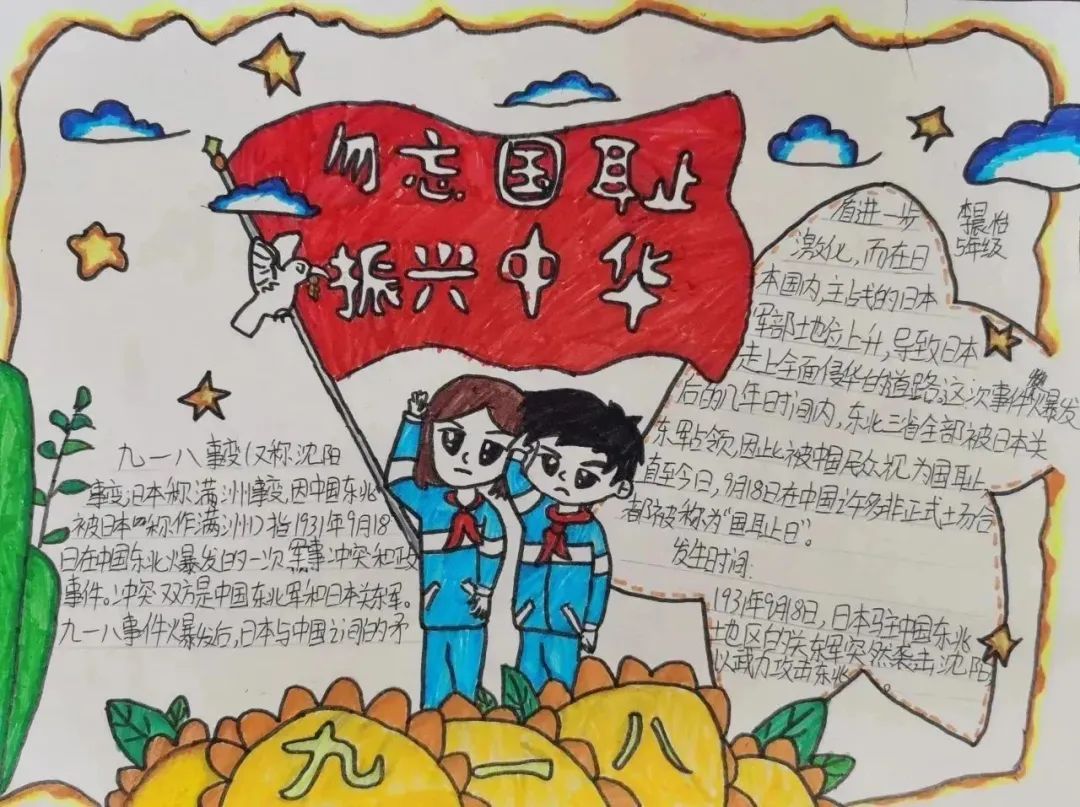 勿忘国耻
振兴中华
九一八事变(又称沈阳
事变,日本称满洲事变,因中国东北
被日本称作满洲)指1931年9月18
日在中国东北爆发的一次军事冲突和政
事件。冲突双方是中国东北军和日本关东军。
九一八事件爆发后,日本与中国之间的矛
盾进一步
激化,而在日
本国内,主战的日本
军部地位上升,导致日本
走上全面侵华的道路。这次事件爆发
后的几年时间内,东北三省全部被日本关
东军占领,因此被中国民众视为国耻
直至今日,9月18日在中国许多非正式场合
都被称为"国耻日"。
发生时间:
1931年9月18日,日本驻中国东北
地区的关东军突然袭击沈阳
以武力攻击东北。
李晨怡
5年级
九一八